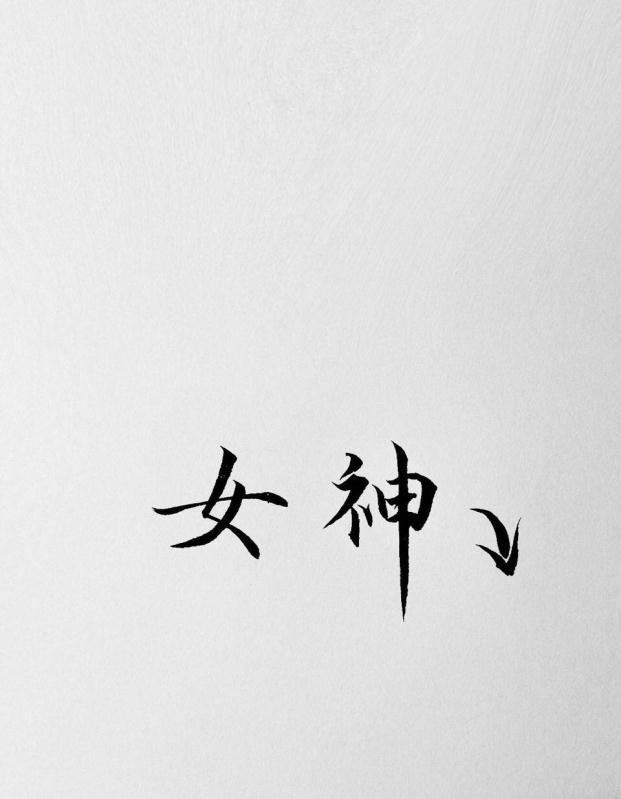 女神↘